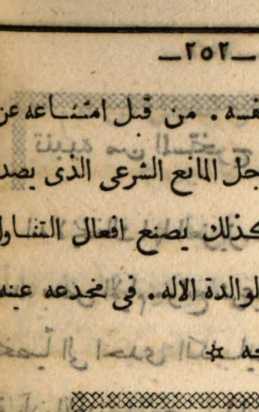 —٢٥٢—
نفسه . من قبل امتناعه عن
جل المانع الشرعى الذى يصد
كذلك يصنع افعال التناول
لوالدة الاله . فى مخدعه عينه